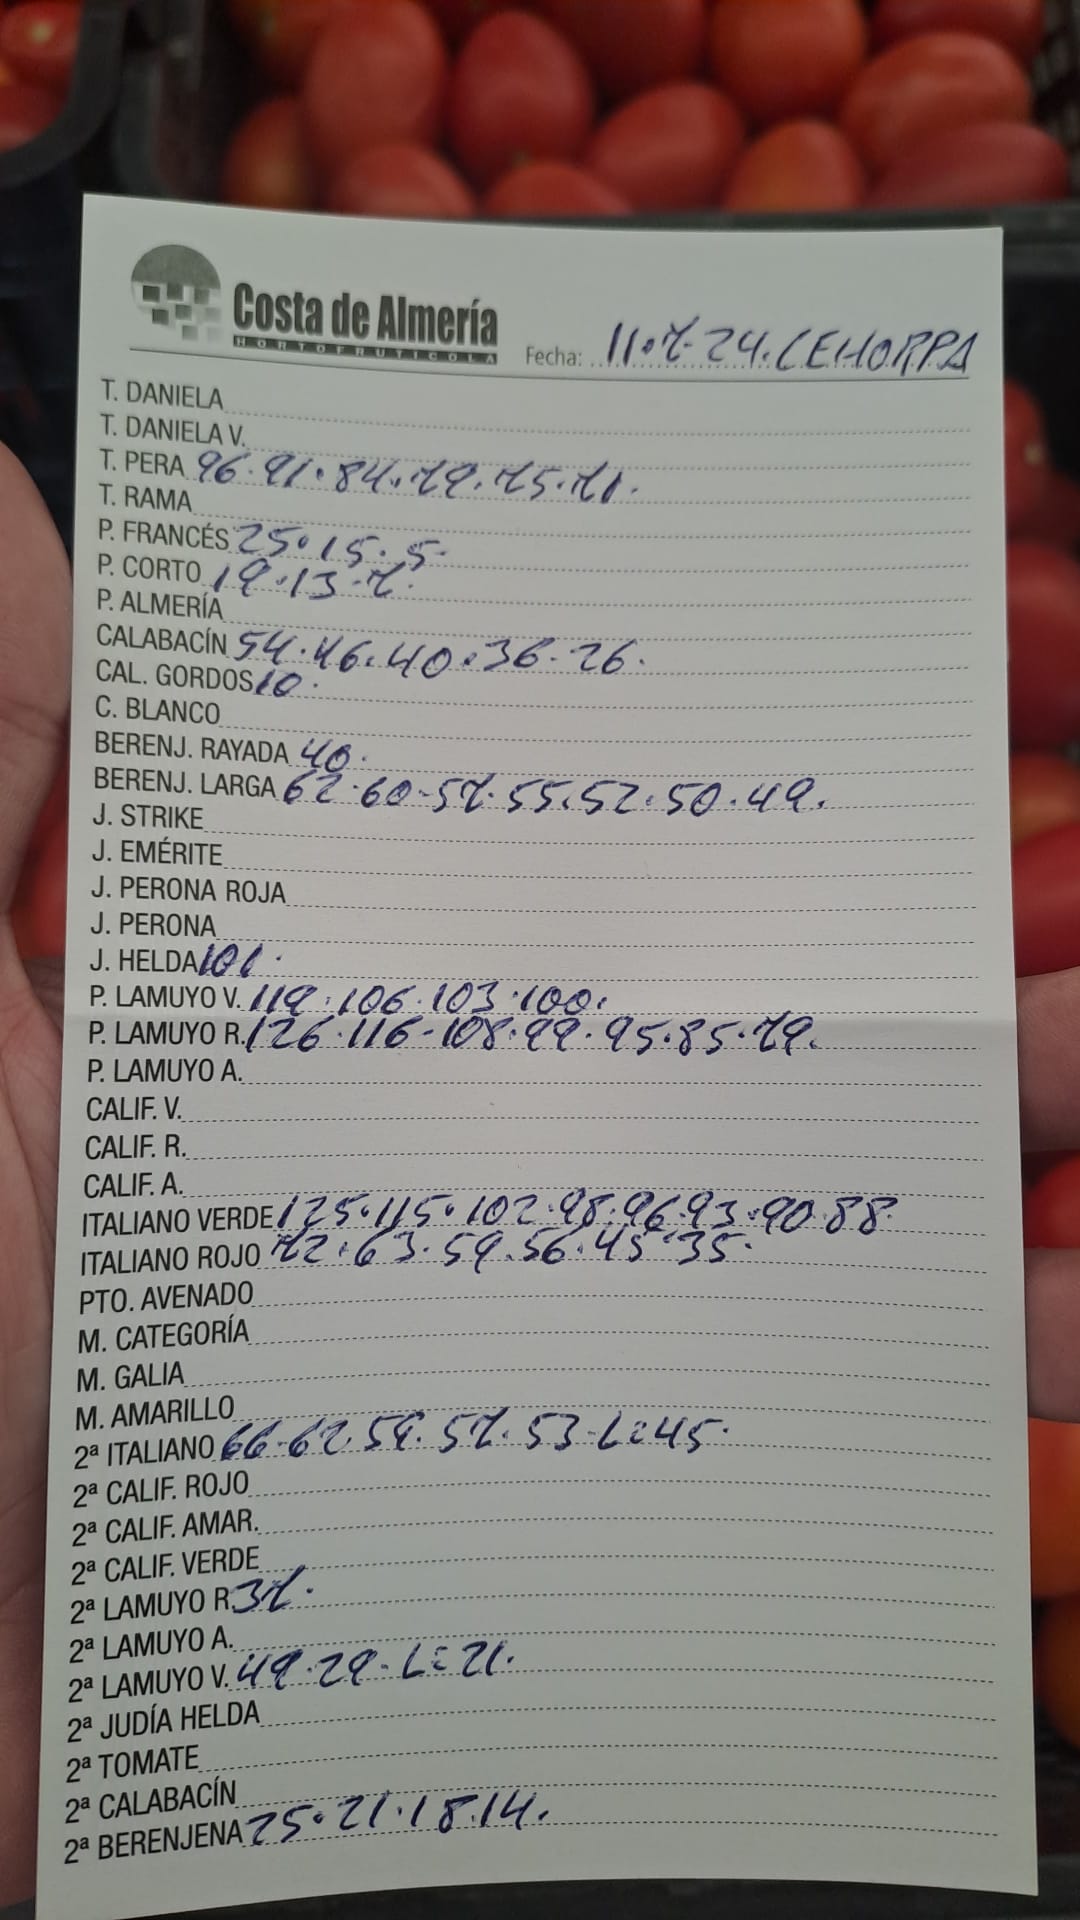 Costa de Almería
HORTOFRUTICOLA
Fecha: 11.7.24. CEHORPA
T. DANIELA
T. DANIELA V.
T. PERA 96.91.84.79.75.71.
T. RAMA
P. FRANCÉS 25.15.5.
P. CORTO 19.13.7.
P. ALMERÍA
CALABACÍN 54.46.40.36.26.
CAL. GORDOS 10.
C. BLANCO
BERENJ. RAYADA 40.
BERENJ. LARGA 62.60-57.55.52.50.49.
J. STRIKE
J. EMÉRITE
J. PERONA ROJA
J. PERONA
J. HELDA 101.
P. LAMUYO V. 119.106.103.100.
P. LAMUYO R. 126.116-108.99.95.85.79.
P. LAMUYO A.
CALIF. V.
CALIF. R.
CALIF. A.
ITALIANO VERDE 125.115.102.98.96.93.90.88.
ITALIANO ROJO 72.63.59.56.45.35.
PTO. AVENADO
M. CATEGORÍA
M. GALIA
M. AMARILLO
2ª ITALIANO 66-62.59.57.53-L=45.
2ª CALIF. ROJO
2ª CALIF. AMAR.
2ª CALIF. VERDE
2ª LAMUYO R. 37.
2ª LAMUYO A.
2ª LAMUYO V. 49.29-L=21.
2ª JUDÍA HELDA
2ª TOMATE
2ª CALABACÍN
2ª BERENJENA 25.21.18.14.